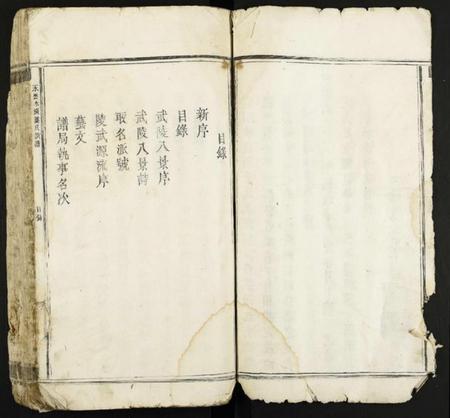 目錄
新序
目錄
武陵八景序
武陵八景詩
取名派號
陵武源流序
藝文
譜局執事名次
目錄